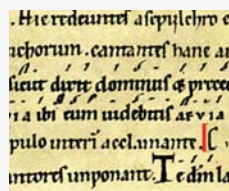 . Hic redeuntes a sepulchro c
chorum . cantantes hanc an
sicut dixit dominus & prece
via ibi eum uidebitis aevia
pulo interi acclamante . C
antores inponant . Te dm la